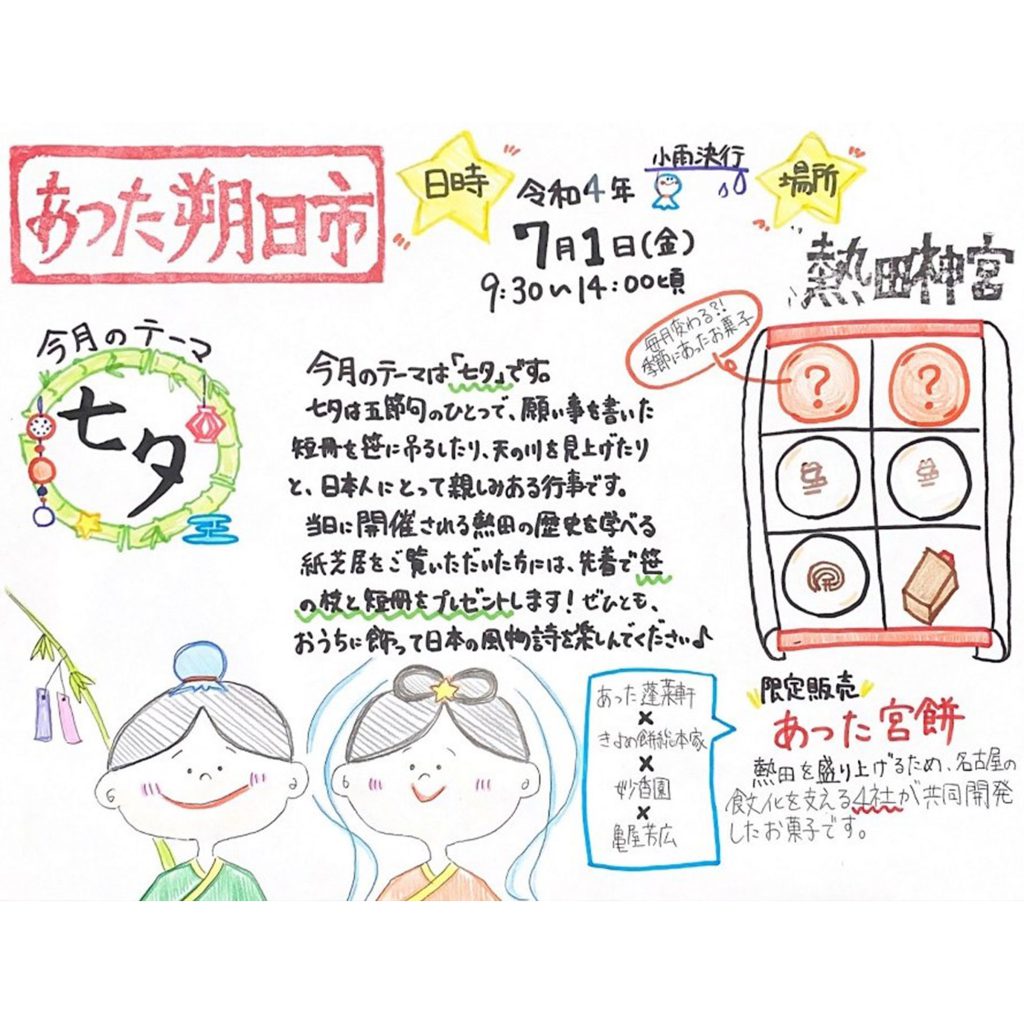 あった朔日市
日時
令和4年
7月1日(金)
9:30〜14:00頃
小雨決行
場所
熱田神宮
今月のテーマ
七夕
今月のテーマは「七夕」です。
七夕は五節句のひとつで、願い事を書いた
短冊を笹に吊るしたり、天の川を見上げたり
と、日本人にとって親しみある行事です。
当日に開催される熱田の歴史を学べる
紙芝居をご覧いただいた方には、先着で笹
の枝と短冊をプレゼントします!ぜひとも、
おうちに飾って日本の風物詩を楽しんでください♪
毎月変わる?!
季節にあったお菓子
?
?
あった蓬莱軒
×
きよめ餅総本家
×
妙香園
×
亀屋芳広
限定販売
あった宮餅
熱田を盛り上げるため、名古屋の
食文化を支える4社が共同開発
したお菓子です。